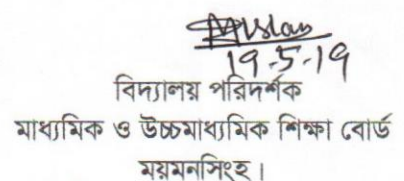 19-5-19
বিদ্যালয় পরিদর্শক
মাধ্যমিক ও উচ্চমাধ্যমিক শিক্ষা বোর্ড
ময়মনসিংহ।